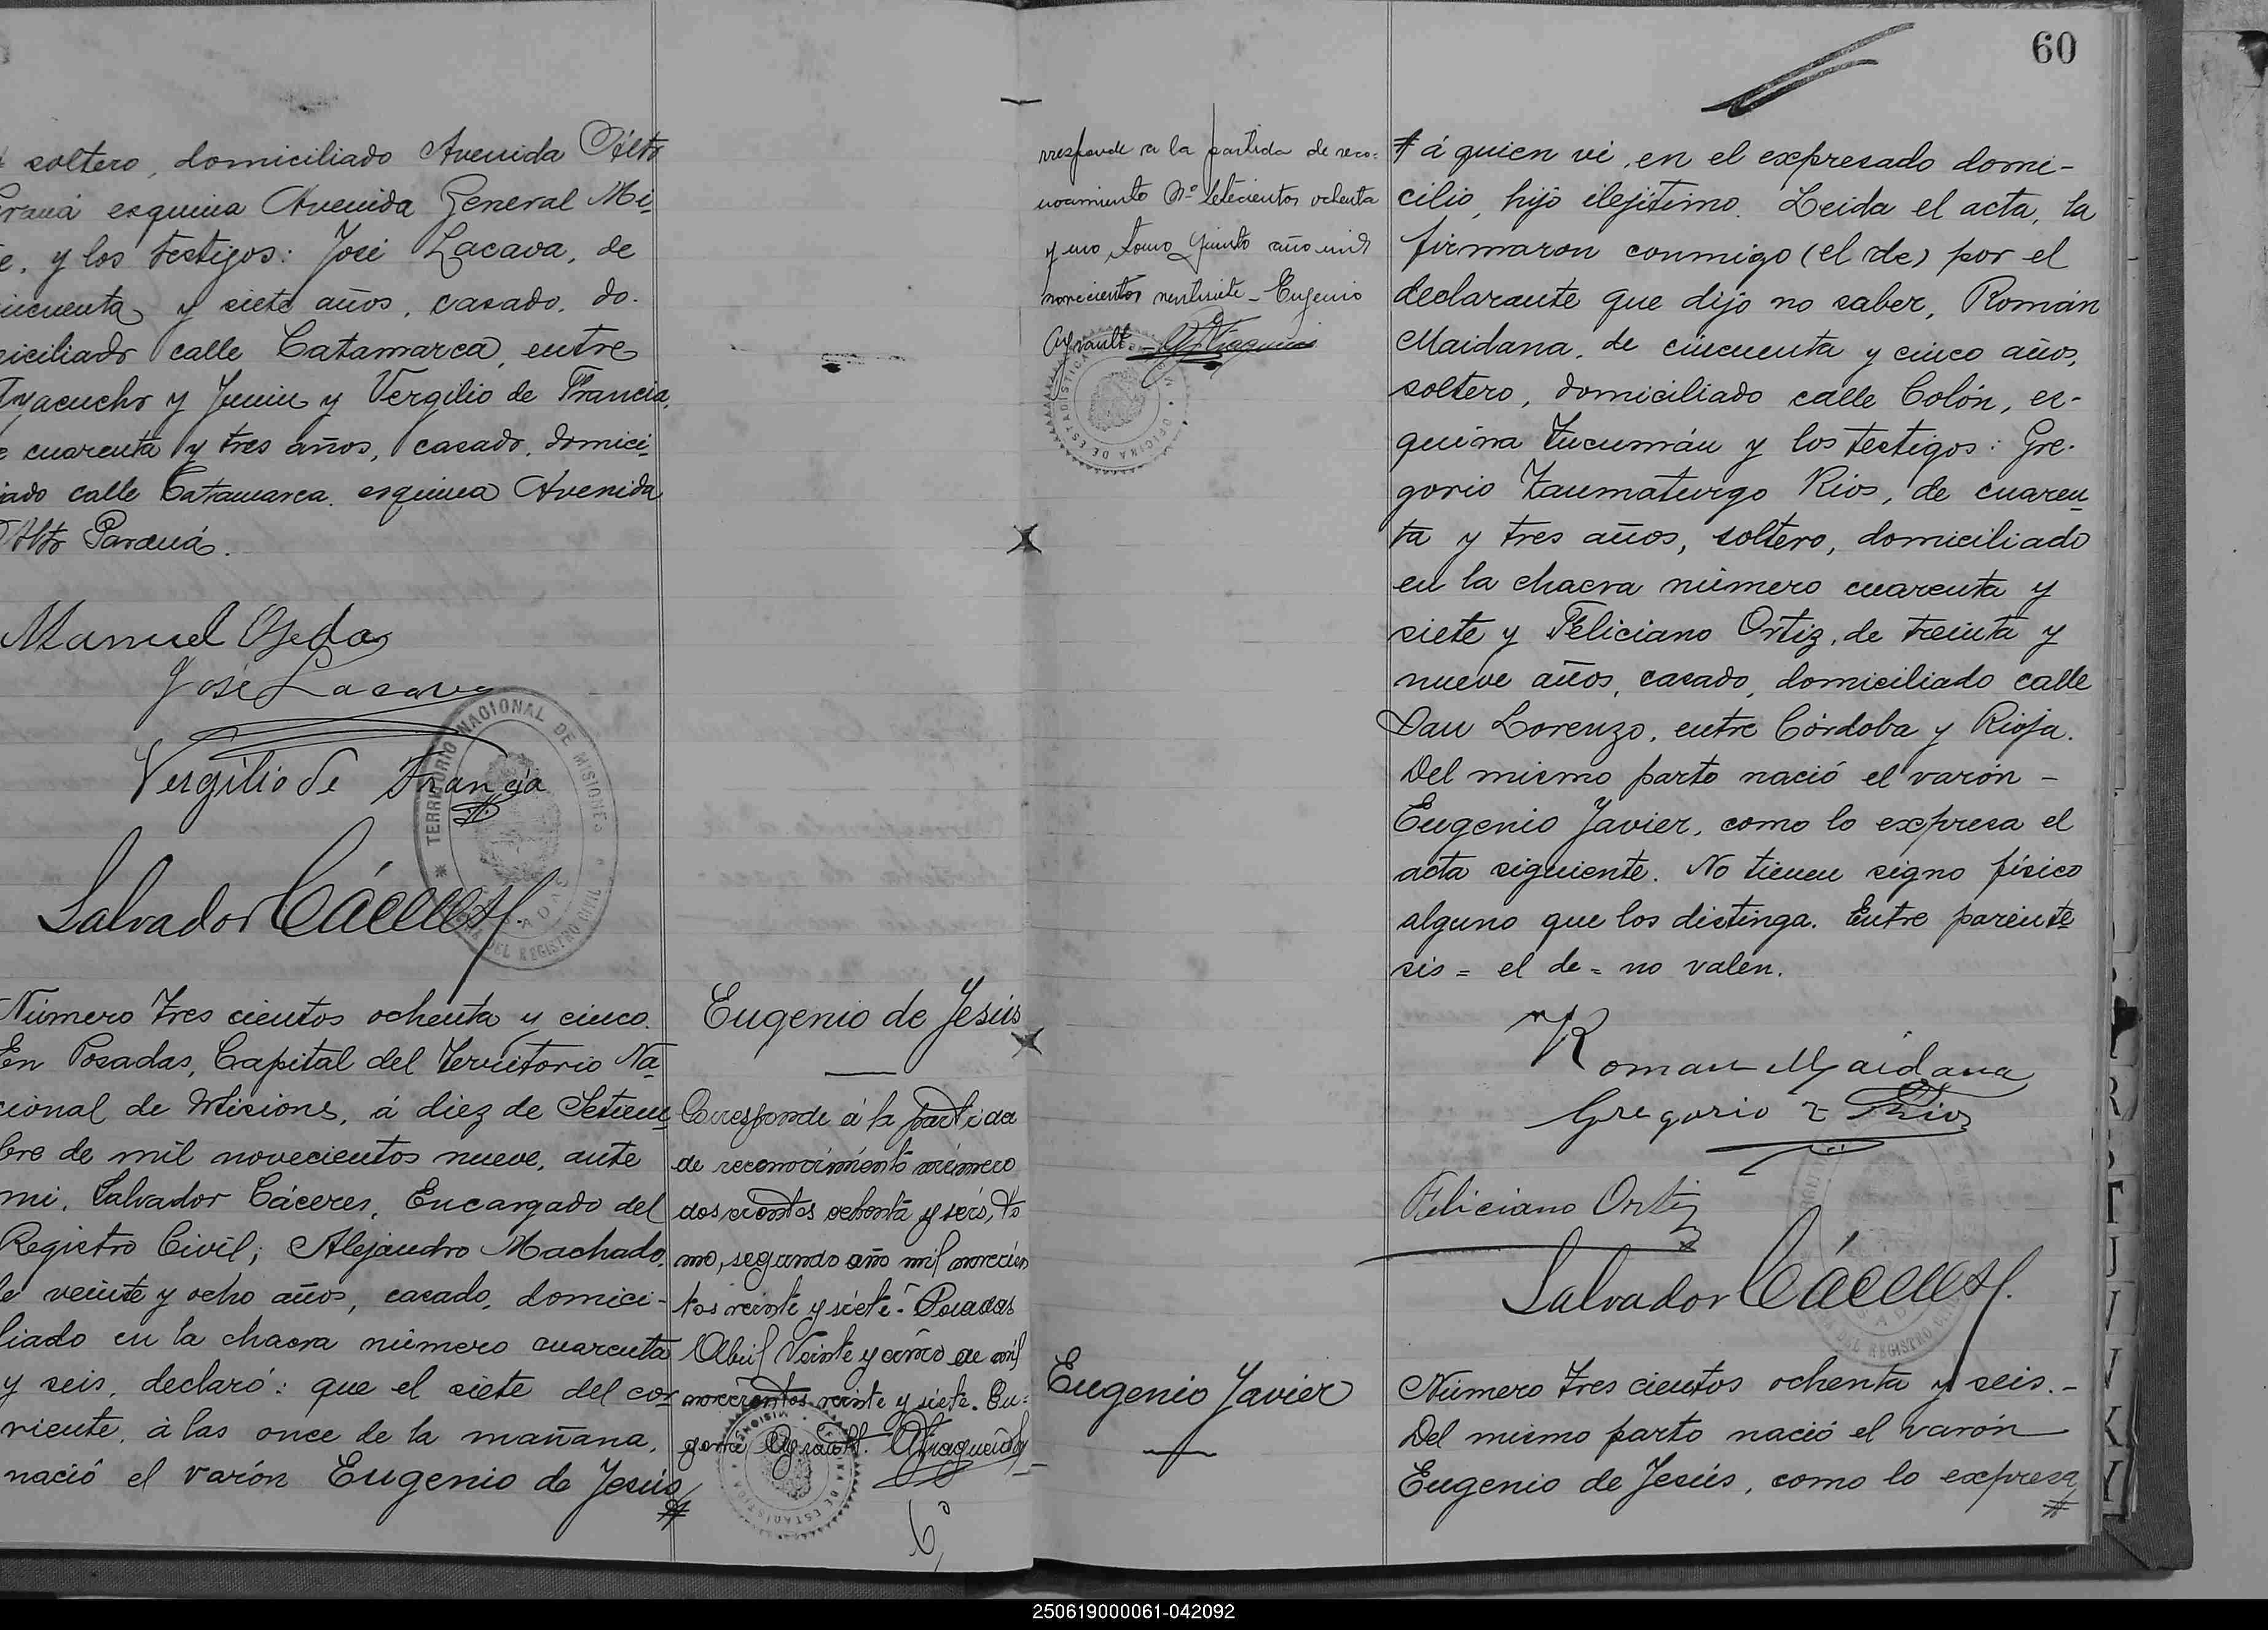 soltero, domiciliado Avenida Alto
Paraná esquina Avenida General Mi-
e, y los testigos: José Lacava, de
cincuenta y siete años, casado, do-
miciliado calle Catamarca, entre
Ayacucho y Junin y Vergilio de Francia,
de cuarenta y tres años, casado, domici-
liado calle Catamarca, esquina Avenida
Alto Paraná.
Manuel Ojeda
José Lacava
Vergilio de Francia
Salvador Cáceres
TERRITORIO NACIONAL DE MISIONES
POSADAS
DEL REGISTRO CIVIL
Número Trescientos ochenta y cinco.
En Posadas, Capital del Territorio Na-
cional de Misiones, á diez de Setiem-
bre de mil novecientos nueve, ante
mi, Salvador Cáceres, Encargado del
Registro Civil; Alejandro Machado,
de veinte y ocho años, casado, domici-
liado en la chacra número cuarenta
y seis, declaró: que el siete del cor-
riente, á las once de la mañana,
nació el varón Eugenio de Jesús #
Eugenio de Jesús
Corresponde á la partida
de reconocimiento número
doscientos ochenta y seis, to
mo, segundo año mil novecien
tos veinte y siete.- Posadas
Abril Veinte y cinco de mil
novecientos veinte y siete. Eu-
genio Ayrault.
6º
rresponde a la partida de reco-
nocimiento Nº Setecientos ochenta
y uno, tomo quinto año mil
novecientos veintisiete - Eugenio
Ayrault
OFICINA DE ESTADISTICA
Eugenio Javier
60
# á quien vi, en el expresado domi-
cilio, hijo ilejítimo. Leida el acta, la
firmaron conmigo (el de) por el
declarante que dijo no saber, Román
Maidana, de cincuenta y cinco años,
soltero, domiciliado calle Colón, es-
quina Tucumán y los testigos: Gre-
gorio Taumaturgo Rios, de cuaren-
ta y tres años, soltero, domiciliado
en la chacra número cuarenta y
siete y Feliciano Ortiz, de treinta y
nueve años, casado, domiciliado calle
San Lorenzo, entre Córdoba y Rioja.
Del mismo parto nació el varón -
Eugenio Javier, como lo expresa el
acta siguiente. No tienen signo físico
alguno que los distinga. Entre parénte
sis = el de = no valen.
Roman Maidana
Gregorio T Rios
Feliciano Ortiz
Salvador Cáceres
Número Trescientos ochenta y seis.-
Del mismo parto nació el varón
Eugenio de Jesús, como lo expresa #
250619000061-042092